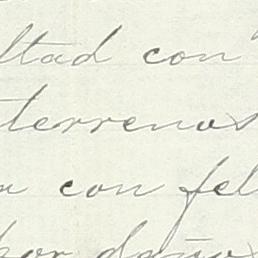 ltad con
terrenos
con fel
por daños